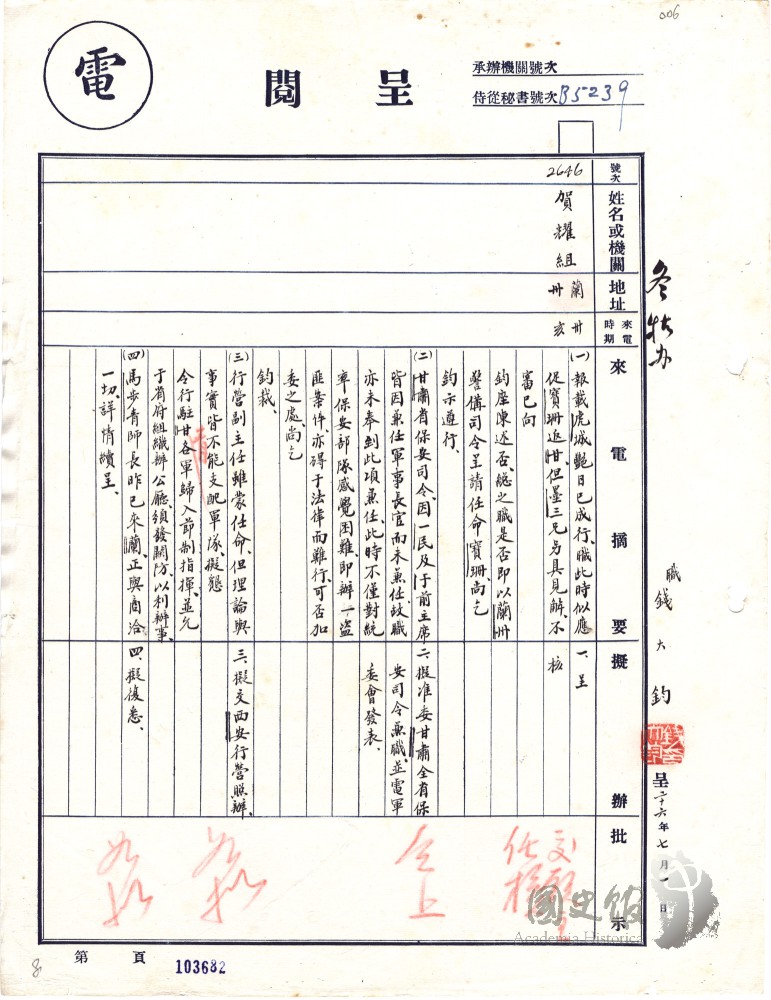 006
電
呈閱
承辦機關號次
侍從秘書號次 B5239
號次
2646
姓名或機關
賀耀組
地址
蘭州
來電時期
卅亥
來電摘要
(一)報載虎城豔日已成行、職此時似應
促寶珊返甘、但墨三兄另具見解、不
審已向
鈞座陳述否、總之職是否即以蘭州
警備司令呈請任命寶珊、尚乞
鈞示遵行、
(二)甘肅省保安司令、因一民及于前主席
皆因兼任軍事長官而未兼任、故職
亦未奉到此項兼任、此時不僅對統
率保安部隊感覺困難、即辦一盜
匪案件、亦碍于法律而難行、可否加
委之處、尚乞
鈞裁、
(三)行營副主任雖蒙任命、但理論與
事實皆不能支配軍隊、擬懇
令行駐甘各軍歸入節制指揮、並乞
于省府組織辦公廳、頒發關防、以利辦事、
(四)馬步青師長昨已來蘭、正與商洽
一切、詳情續呈、
擬辦
一、呈
核
二、擬准委甘肅全省保
安司令兼職、並電軍
委會發表、
三、擬交西安行營照辦、
四、擬復悉、
批示
如擬
如擬
職錢大鈞
呈
二十六年七月一日
第 頁
103682
8
國史館
Academia Historica